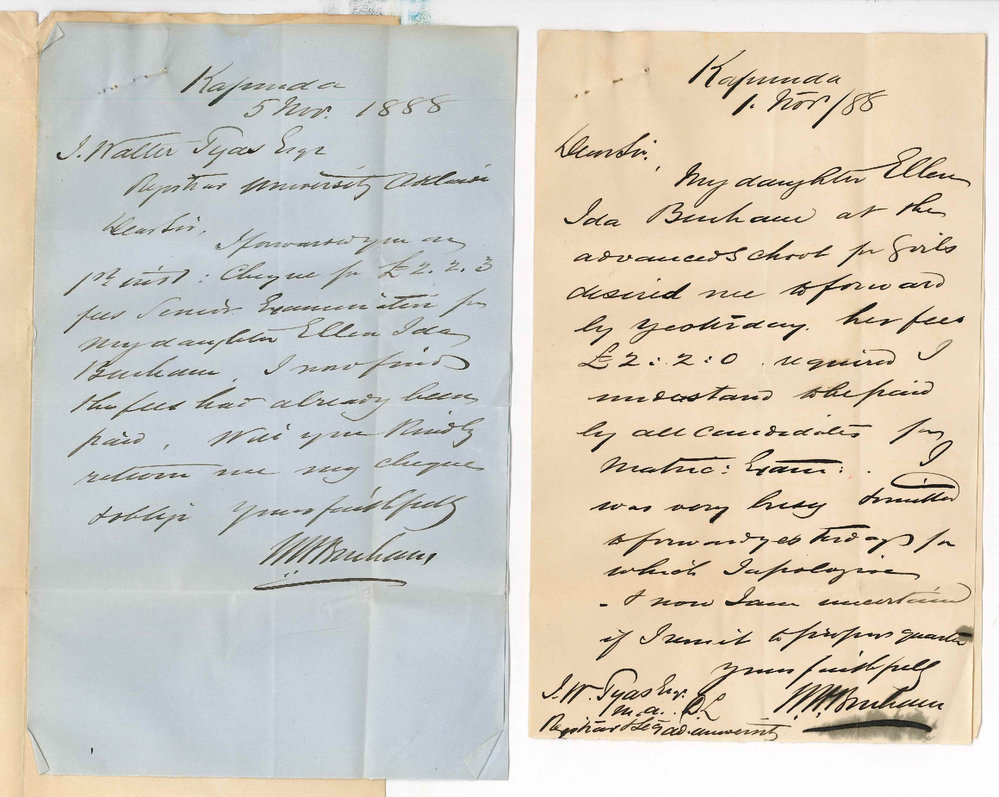 Kapunda
5 Nov. 1888
J. Walter Tyas Esqr
Registrar University Adelaide
Dear Sir,
I forwarded you on
1st inst: Cheque for £2.2.
fees Senior Examination for
my daughter Ellen Ida
Benham, I now find
the fees had already been
paid, Will you Kindly
return me my cheque
& oblige Yours faithfully
W H Benham,
Kapunda
1. Nov /88
Dear Sir,
My daughter Ellen
Ida Benham at the
advanced School for Girls
desired me to forward
by yesterday. her fees
£2:2:0 required I
understand to be paid
by all candidates for
Matric: Exam: . I
was very busy & omitted
to forward yesterday for
which I apologise
- & now I am uncertain
if I remit to proper quarter
Yours faithfully
W H Benham
J. W. Tyas Esqr.
M.A.
Registrar ad. University